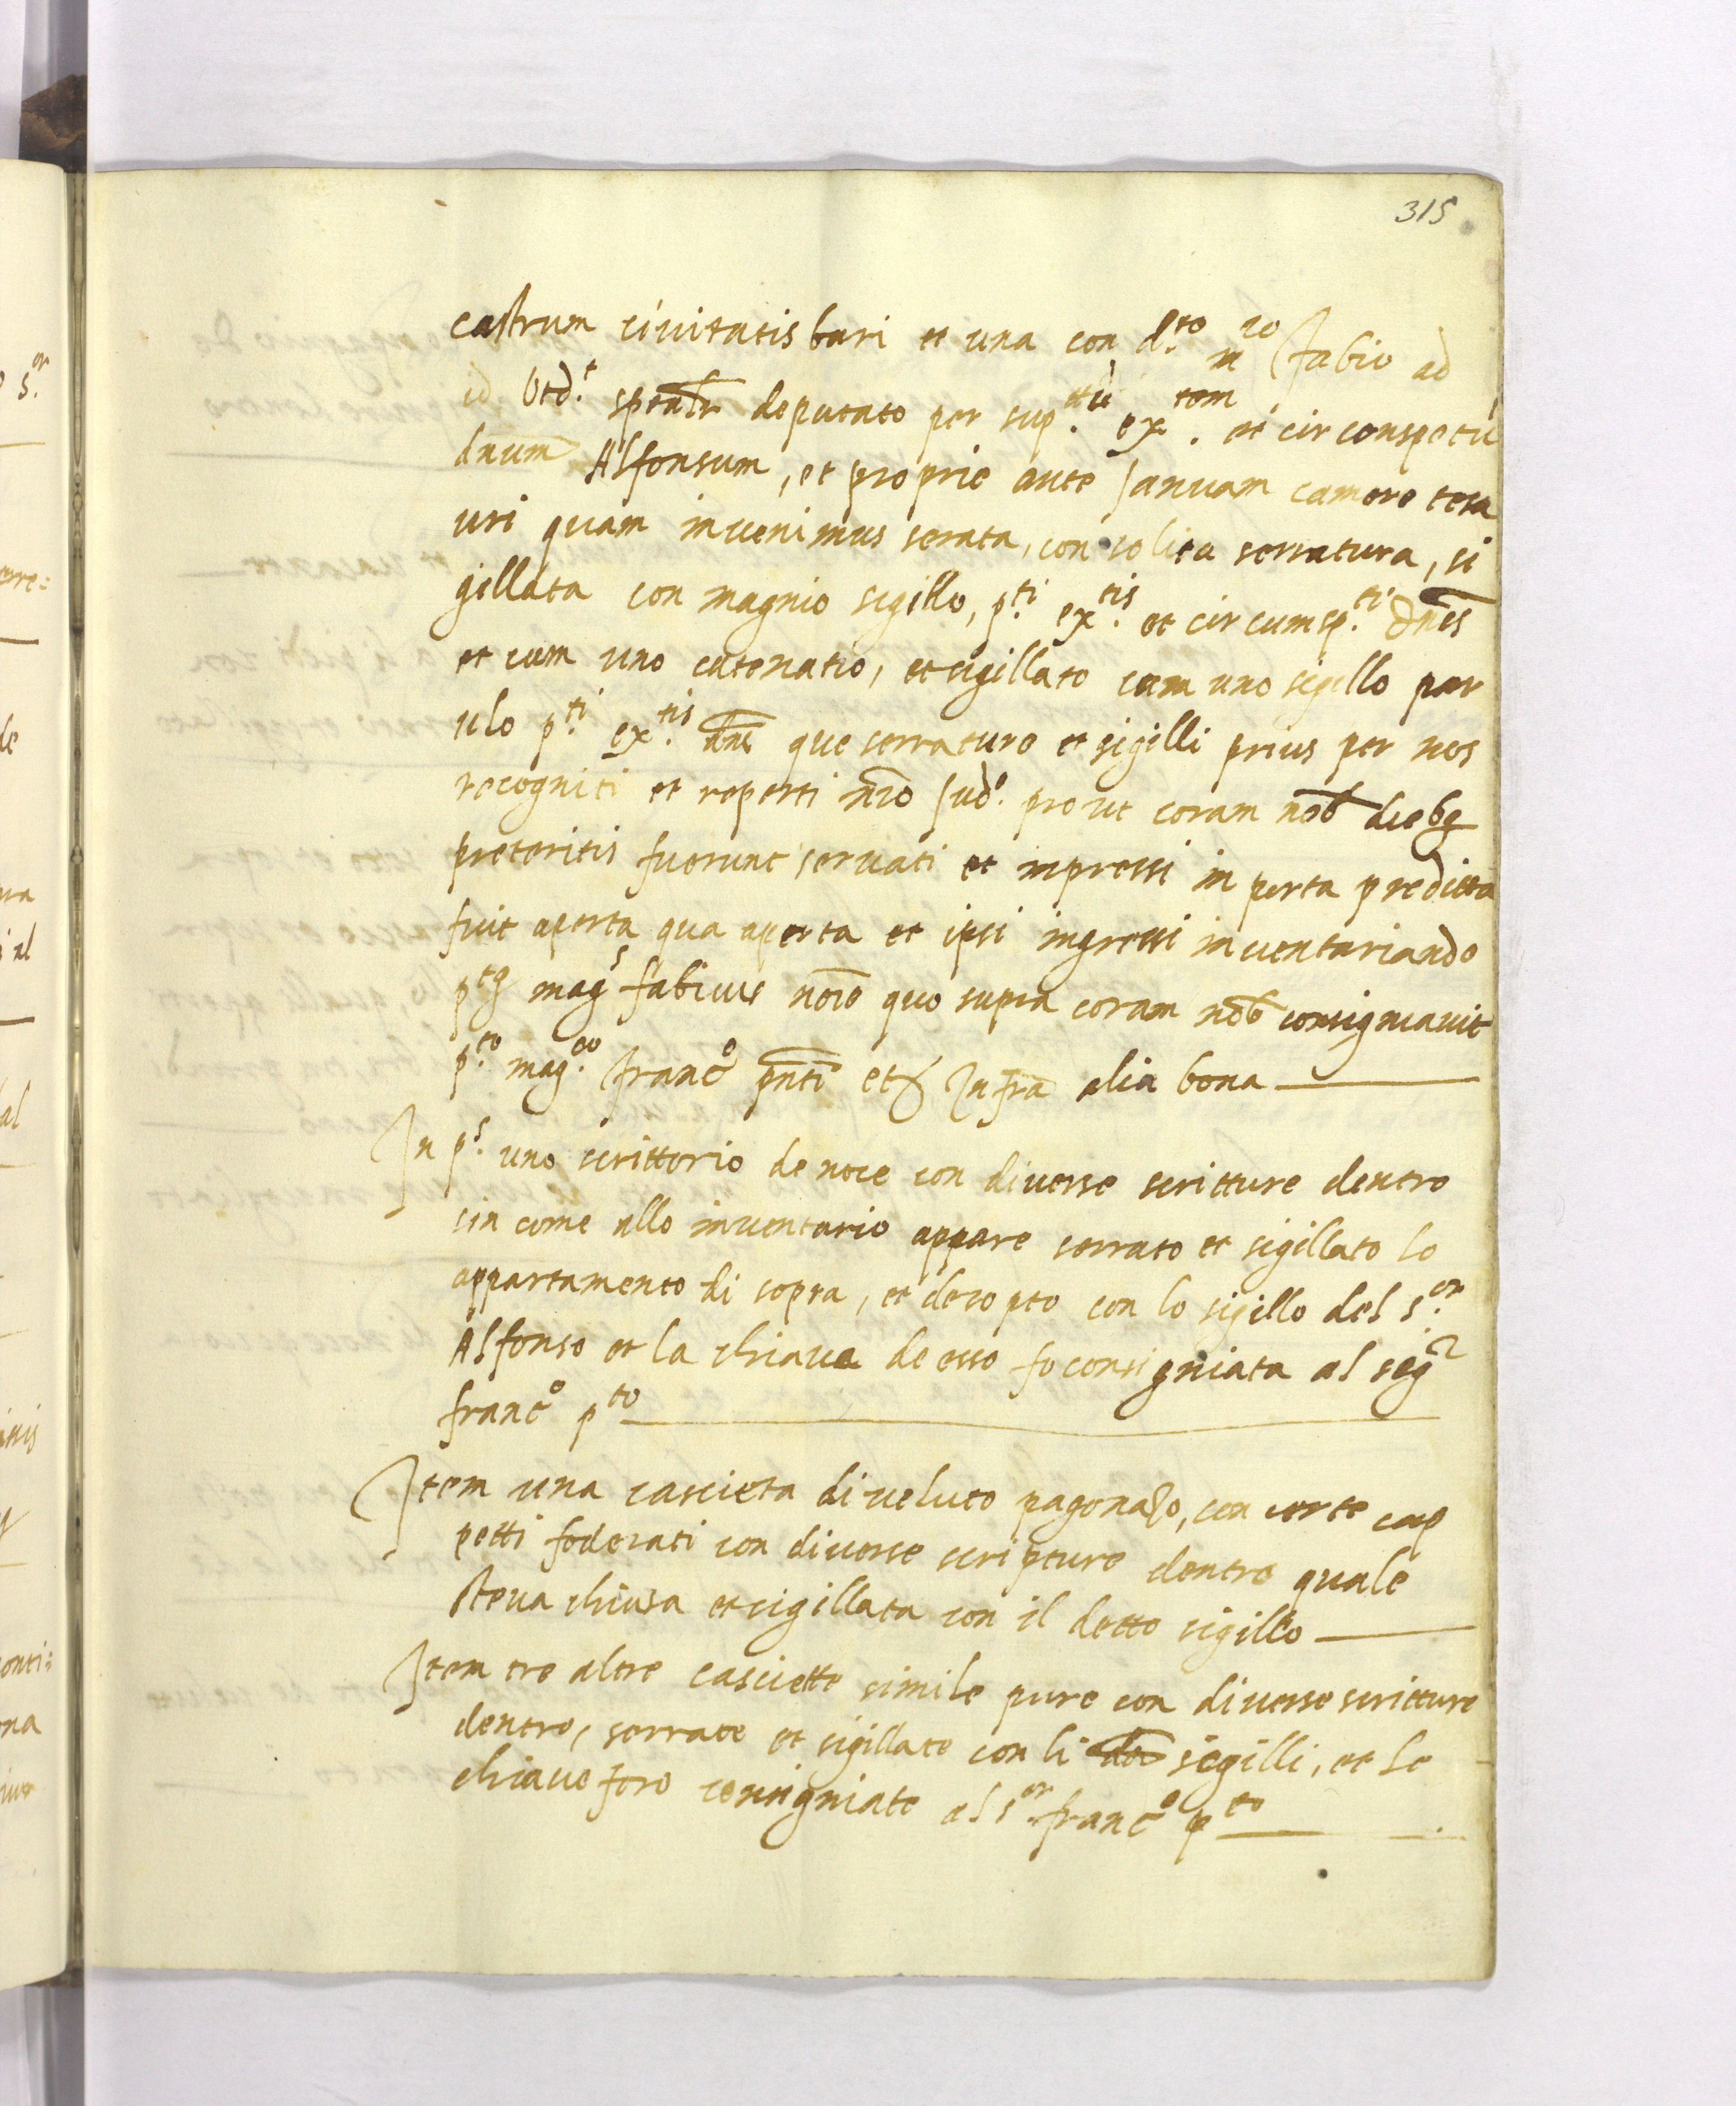 315
castrum ciuitatis bari et una con d.to m.co Fabio ad
id Vtd.r sp̅ealr̅ deputato per sup.tu ex.tem et circonspectū
dnūm Alfonsum, et proprie ante Januam camere tesa
uri quam inuenimus serata, con solita serratura, si
gillata con magnio sigillo, p.ti ex.tis et circumsp.ti dn̅is
et cum uno catenatio, et sigillato cum uno sigillo par
uulo p.ti ex.tis dn̅i que serrature et sigilli prius per nos
recogniti et reperti nr̅o Jud.o prout coram nob̅ diebꝫ
preteritis fuerunt seruati et inpressi in porta preditta
fuit aperta qua aperta et ipsi ingressi inuentariando
p.tꝰ mag.s fabius noīe quo supra coram nob̅ consigniauit
p.to mag.co franc.o pn̅ti et Infra alia bona
In p.s uno scrittorio de noce con diuerse scritture dentro
sin come allo inuentario appare serrato et sigillato lo
appartamento di sopra, et desopto con lo sigillo del s.or
Alfonso et la chiaue de esso fo consigniata al seg.r
franc.o p.to
Item una cascieta di veluto pagonazo, con certe cap
petti foderati con diuerse scripture dentro quale
steua chiusa et sigillata con il detto sigillo
Item tre altre casciette simile pure con diuerse scritture
dentro, serrate et sigillate con li sigilli, et le
chiaue foro consigniate al s.or franc.o p.to